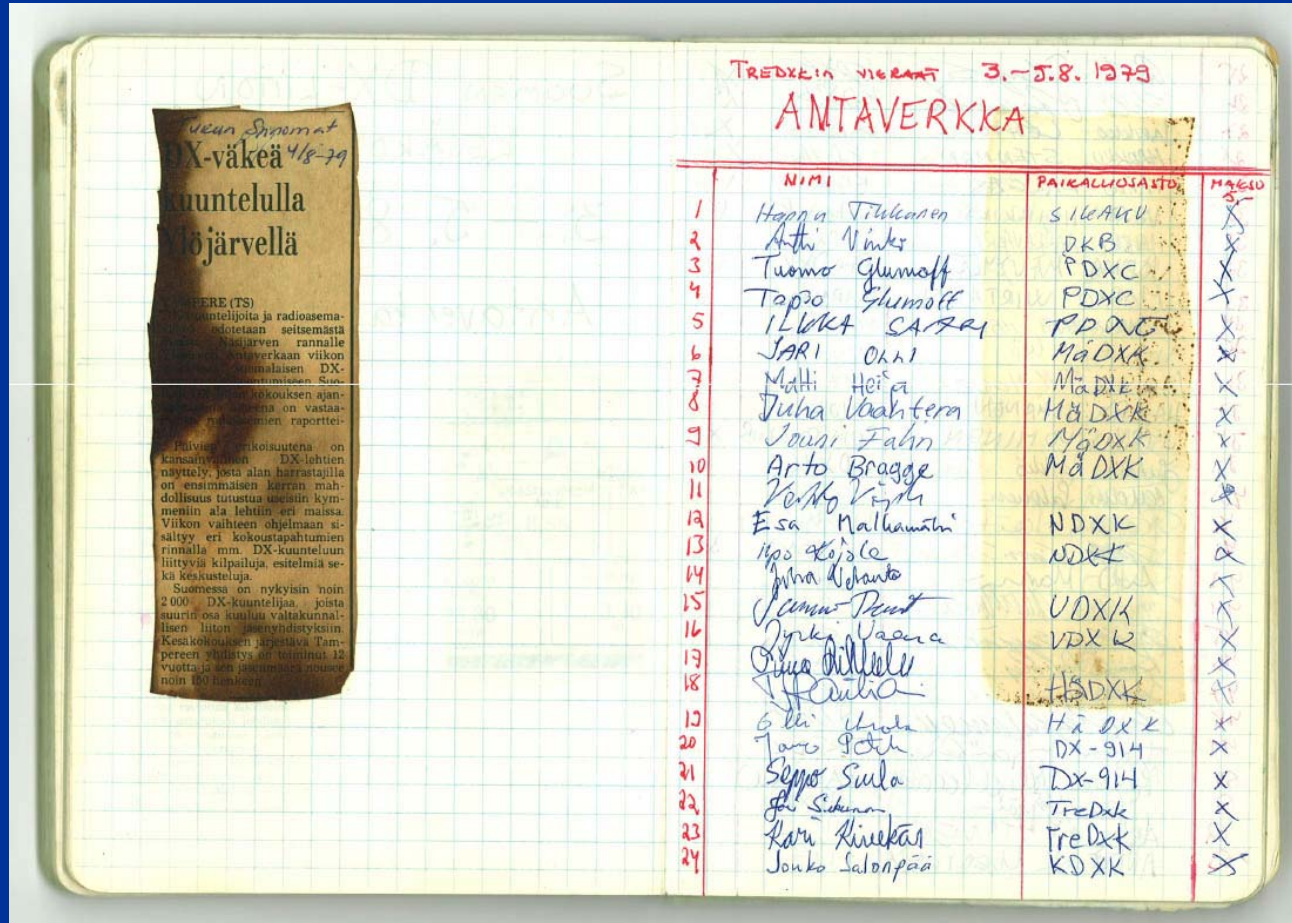 Turun Sanomat
4/8-79
DX-väkeä
kuuntelulla
Ylöjärvellä
TAMPERE (TS)
kuuntelijoita ja radioasema-
odotetaan seitsemästä
Näsijärven rannalle
Antaverkaan viikon
suomalaisen DX-
Suo-
kokouksen ajan-
on vastaa-
raporttei-
Päivien erikoisuutena on
kansainvälinen DX-lehtien
näyttely, josta alan harrastajilla
on ensimmäisen kerran mah-
dollisuus tutustua useistin kym-
meniin ala lehtiin eri maissa.
Viikon vaihteen ohjelmaan si-
sältyy eri kokoustapahtumien
rinnalla mm. DX-kuunteluun
liittyviä kilpailuja, esitelmiä se-
kä keskusteluja.
Suomessa on nykyisin noin
2 000 DX-kuuntelijaa, joista
suurin osa kuuluu valtakunnal-
lisen liiton jäsenyhdistyksiin.
Kesäkokouksen järjestävä Tam-
pereen yhdistys on toiminut 12
vuotta ja sen jäsenmäärä nousee
noin 150 henkeen.
TREDXK:n VIERAAT 3.-5.8. 1979
ANTAVERKKA
NIMI PAIKALLIOSASTO MAKSU 5,-
1 Hannu Tikkanen SIKAKU X
2 Antti Vinko DKB X
3 Tuomo Glumoff PDXC X
4 Tapio Glumoff PDXC X
5 ILKKA SAARI PDXC X
6 JARI OLLI MäDXK X
7 Matti Heija MäDXK X
8 Juha Vaahtera MäDXK X
9 Jouni Fahn MäDXK X
10 Arto Bragge MäDXK X
11 X
12 Esa NDXK X
13 NDXK X
14 Juha X
15 UDXK X
16 Jyrki Vaara VDXK X
17 X
18 HäDXK X
19 Olli HäDXK X
20 DX-914 X
21 Seppo Suila DX-914 X
22 TreDxk X
23 Kari Kivekäs TreDxK X
24 Jouko Salonpää KDXK X